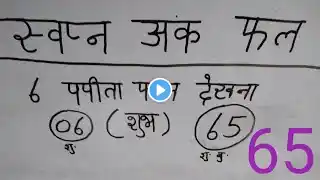 स्वप्न अंक फल
6 पपीता देखना
06 (शुभ) 65
शु. शु. कु.
65